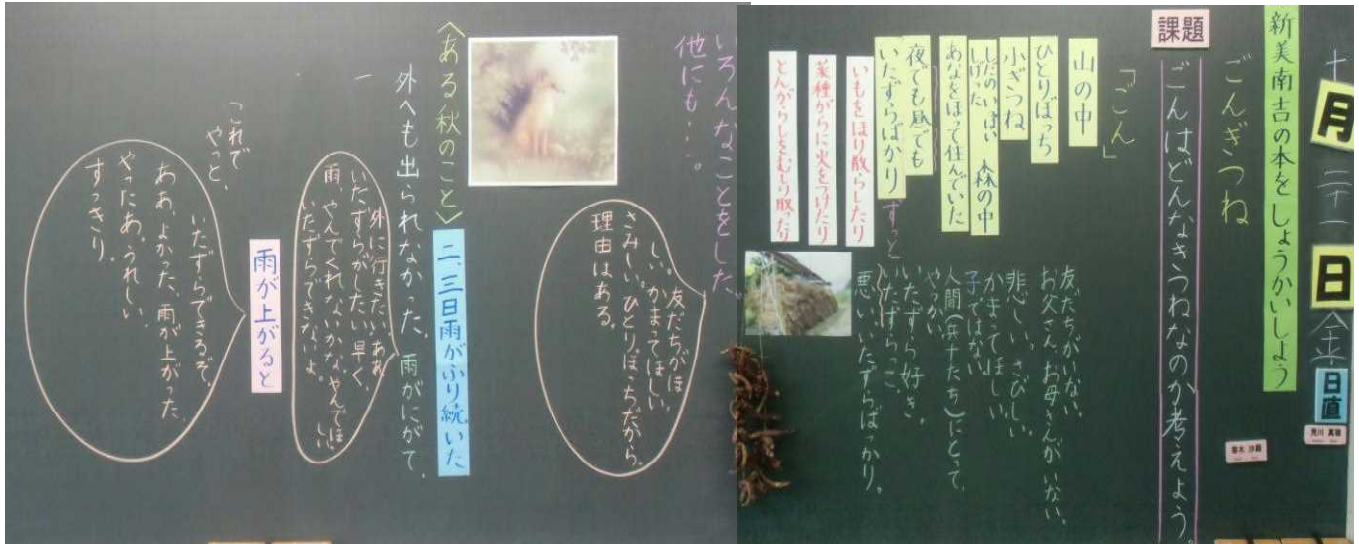 十月二十一日(金)
日直
新美南吉の本をしょうかいしよう
ごんぎつね
課題
ごんはどんなきつねなのか考えよう。
「ごん」
山の中
ひとりぼっち
小ぎつね
しだのいっぱい
しげった
森の中
あなをほって住んでいた
夜でも昼でも
いたずらばかり
ずっと
いもをほり散らしたり
菜種がらに火をつけたり
とんがらしをむしり取ったり
友だちがいない。
お父さん、お母さんがいない。
悲しい。さびしい。
かまってほしい。
子ではない
人間(兵十たち)にとって、
やっかい
いたずら好き。
いたずらっこ。
悪い。いたずらばっかり。
いろんなことをした
他にも…。
友だちがほ
しい。かまってほしい。
さみしい。ひとりぼっちだから、
理由はある。
〈ある秋のこと〉
二、三日雨がふり続いた
外へも出られなかった。
雨がにがて。
外に行きたい。ああ
いたずらがしたい。早く、
雨、やんでくれないかな。やんでほしい。
いたずらできないよ。
雨が上がると
これで
やっと、
いたずらできるぞ。
ああ、よかった、雨が上がった。
やったあ。うれしい。
すっきり。